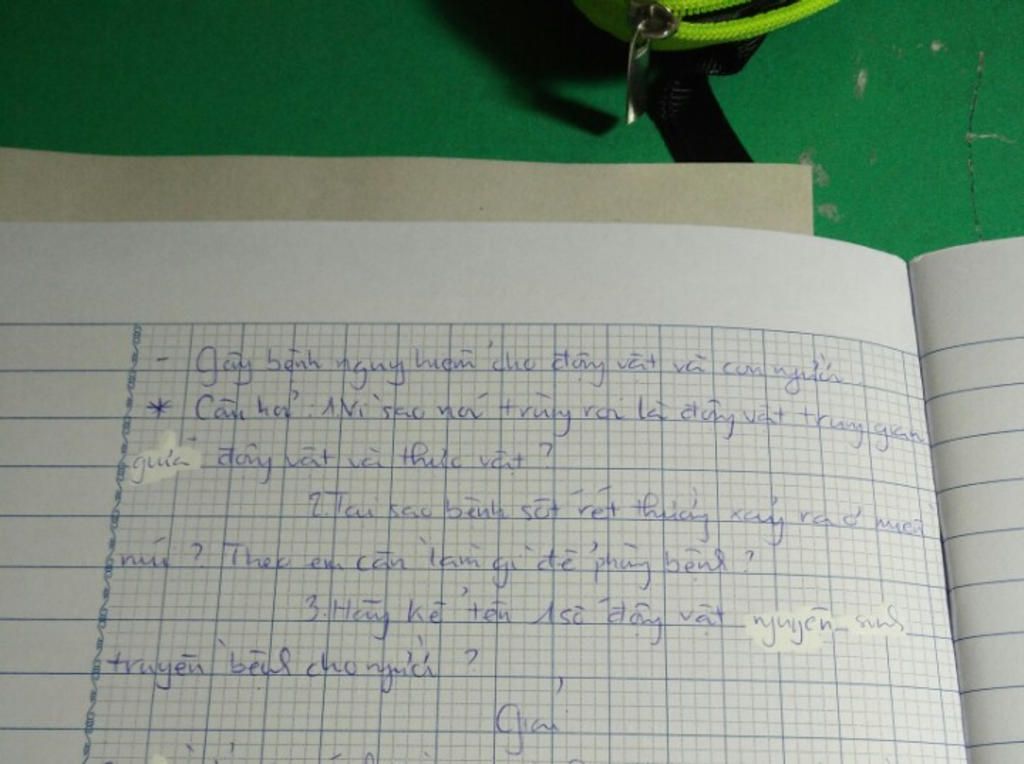 - Gây bệnh nguy hiểm cho động vật và con người
* Câu hỏi: 1.Vì sao nói trùng roi là động vật trung gian
giữa động vật và thực vật?
2.Tại sao bệnh sốt rét thường xảy ra ở miền
núi? Theo em cần làm gì để phòng bệnh?
3.Hãy kể tên 1 số động vật nguyên sinh
truyền bệnh cho người?
Giải